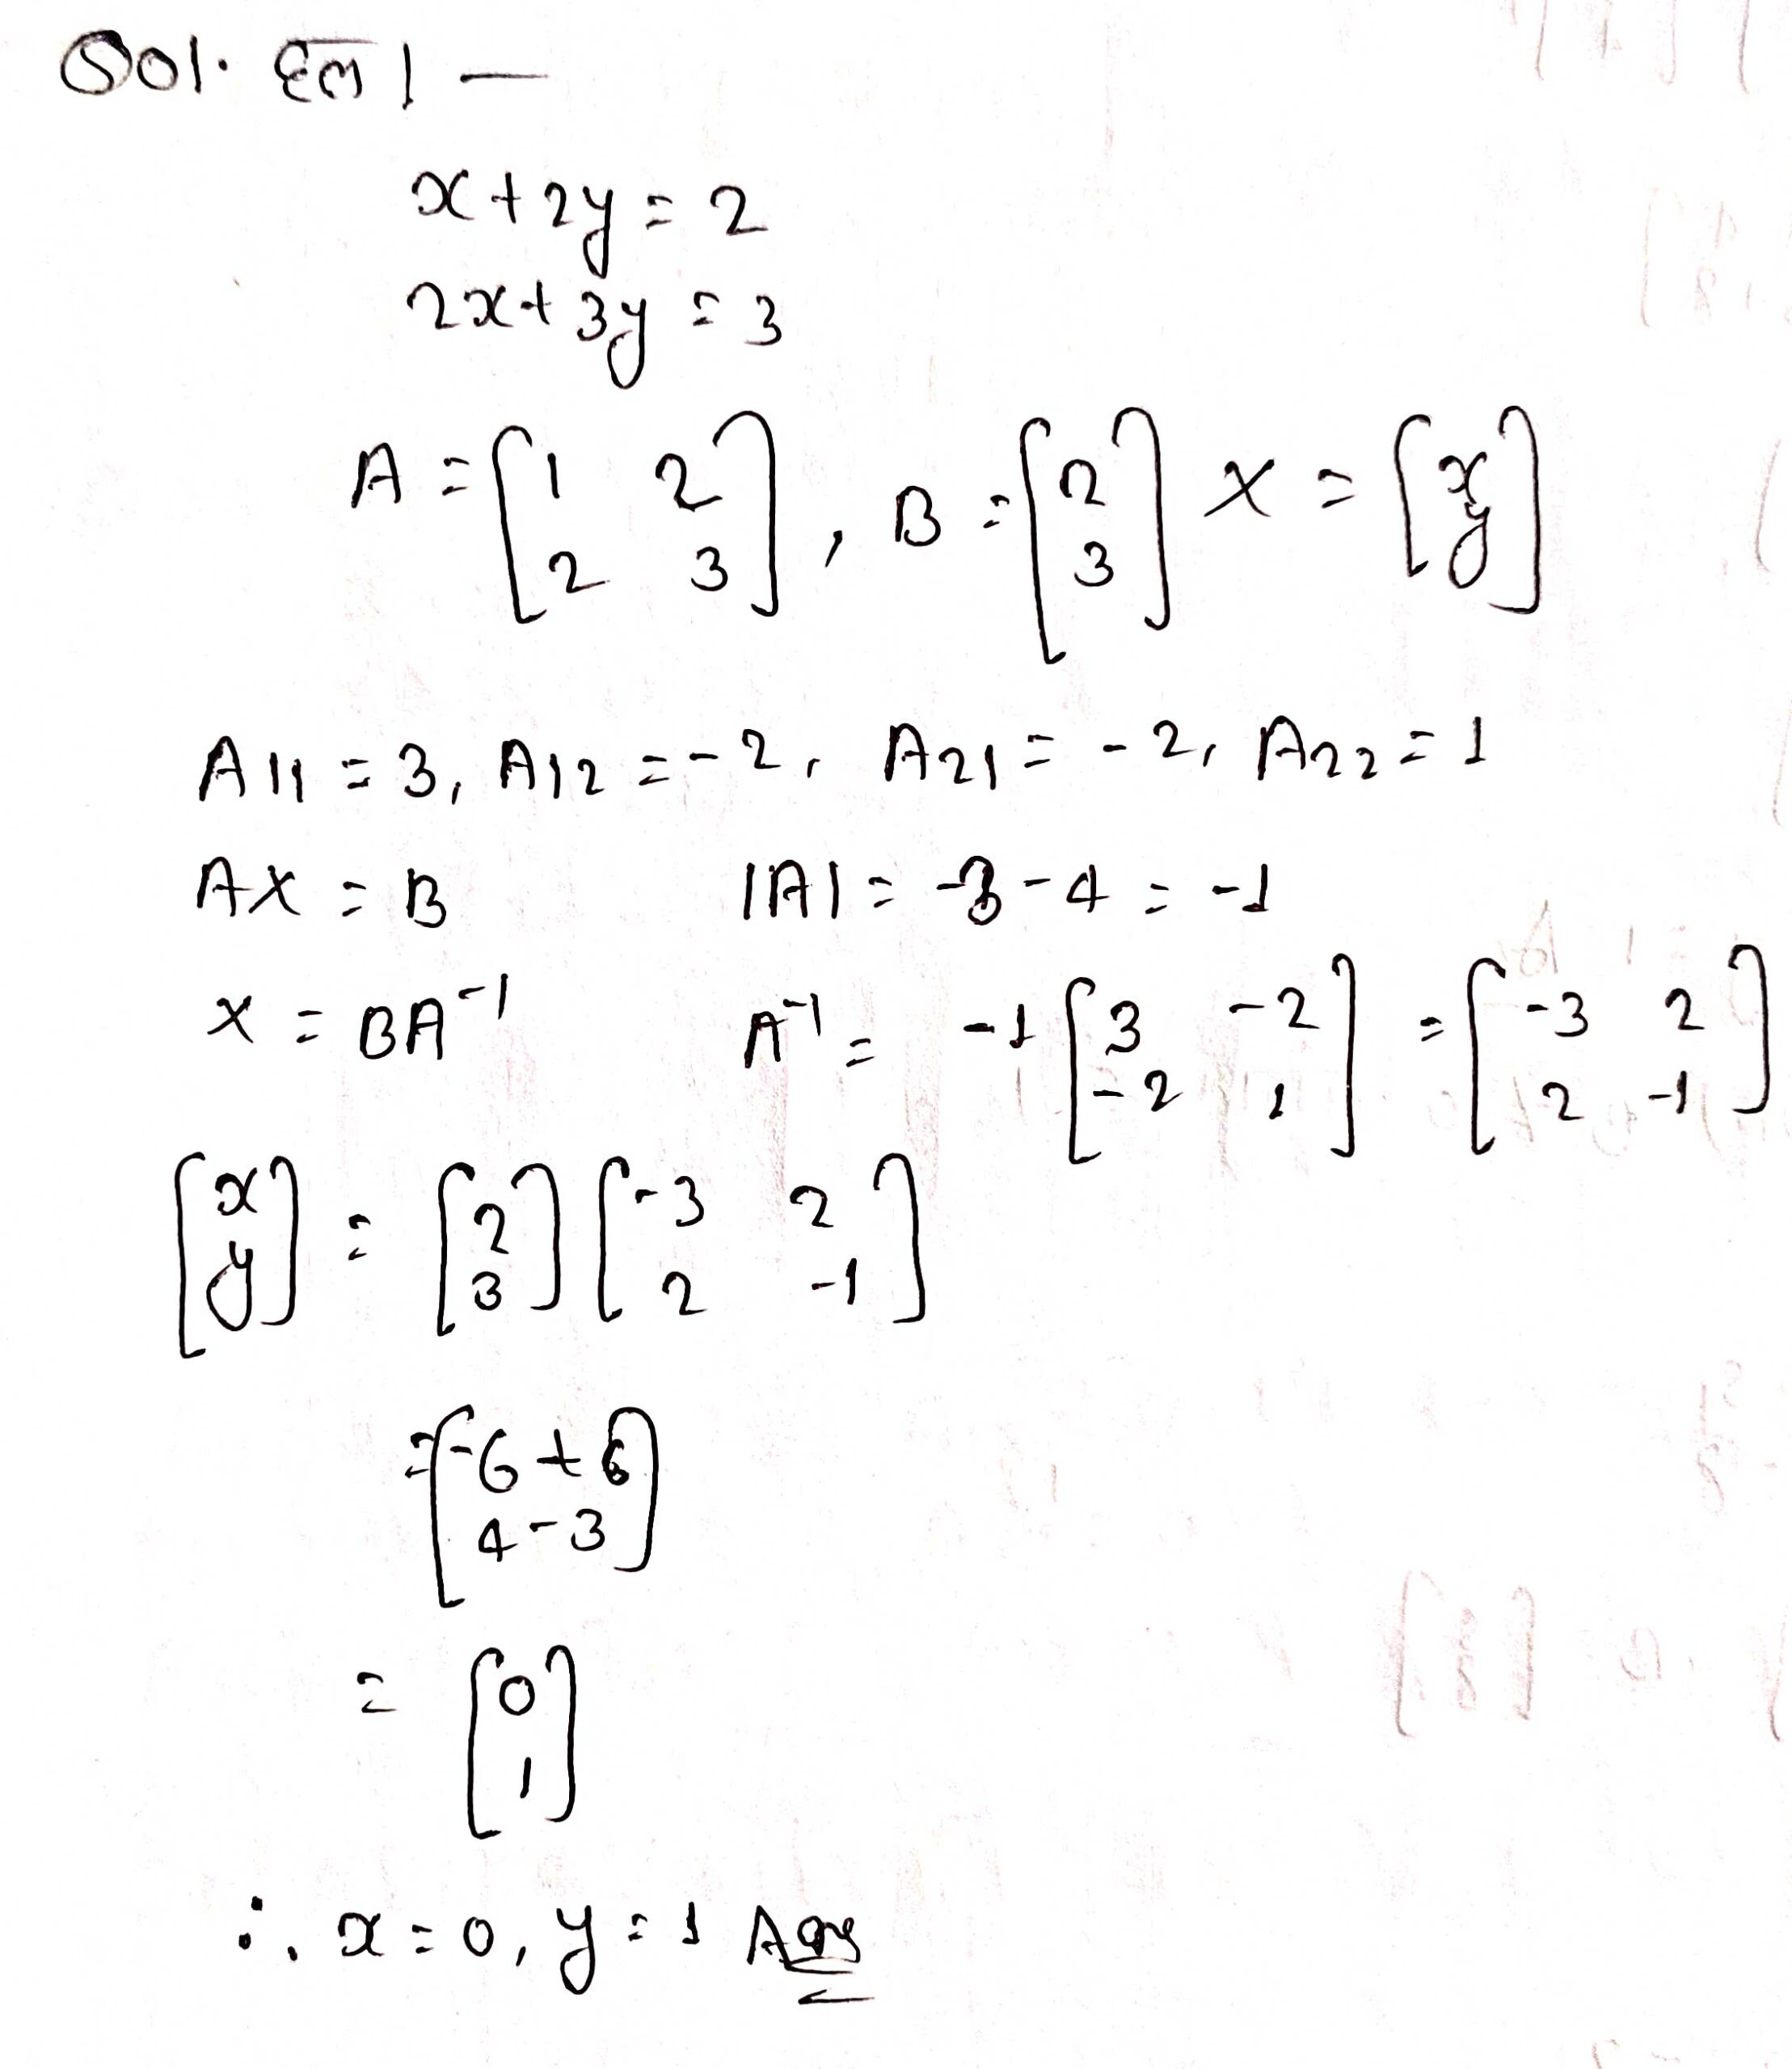 Sol. हल 1 —
x + 2y = 2
2x + 3y = 3
A = [1 2; 2 3], B = [2; 3] X = [x; y]
A11 = 3, A12 = -2, A21 = -2, A22 = 1
AX = B |A| = -3 - 4 = -1
X = BA⁻¹ A⁻¹ = -1 [3 -2; -2 1] = [-3 2; 2 -1]
[x; y] = [2; 3] [-3 2; 2 -1]
= [-6 + 6; 4 - 3]
= [0; 1]
∴ x = 0, y = 1 Ans